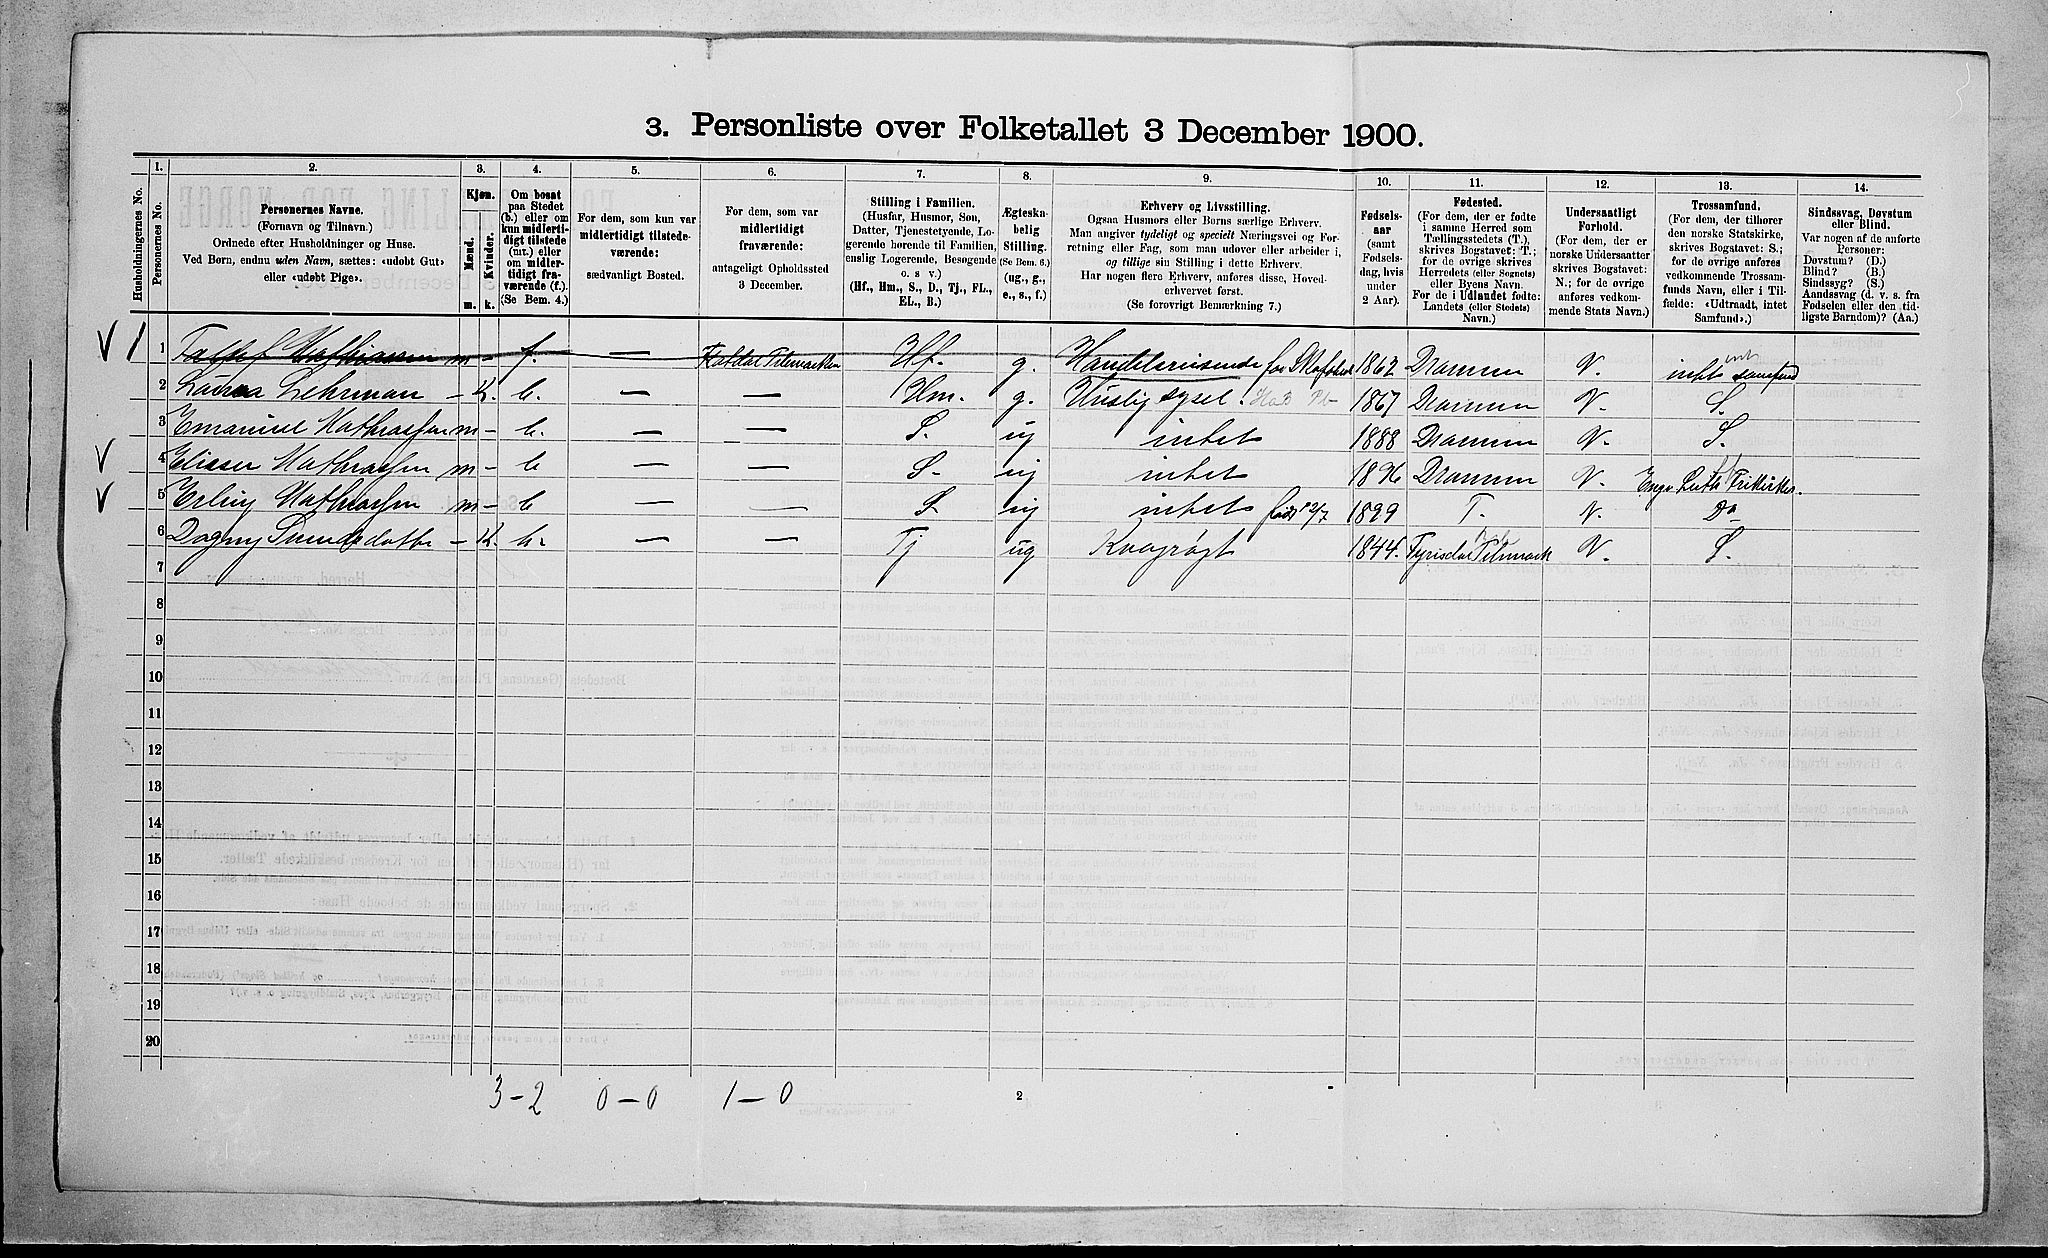 3. Personliste over Folketallet 3 December 1900.
1. 2. 3. 4. 5. 6. 7. 8. 9. 10. 11. 12. 13. 14.
Husholdningernes No.
Personernes No.
Personernes Navne.
(Fornavn og Tilnavn.)
Ordnede efter Husholdninger og Huse.
Ved Børn, endnu uden Navn, sættes: «udøbt Gut»
eller «udøbt Pige».
Kjøn.
Mænd.
Kvinder.
m. k.
Om bosat
paa Stedet
(b.) eller om
kun midlerti-
digt tilstede
(mt.) eller
om midler-
tidigt fra-
værende (f.).
(Se Bem. 4.)
For dem, som kun var
midlertidigt tilstede-
værende:
sædvanligt Bosted.
For dem, som var
midlertidigt
fraværende:
antageligt Opholdssted
3 December.
Stilling i Familien.
(Husfar, Husmor, Søn,
Datter, Tjenestetyende, Lo-
gerende hørende til Familien,
enslig Logerende, Besøgende
o. s v.)
(Hf., Hm., S., D., Tj., FL.,
EL., B.)
Ægteska-
belig
Stilling.
(Se Bem. 6.)
(ug., g.,
e., s., f.)
Erhverv og Livsstilling.
Ogsaa Husmors eller Børns særlige Erhverv.
Man angiver tydeligt og specielt Næringsvei og For-
retning eller Fag, som man udover eller arbeider i,
og tillige sin Stilling i dette Erhverv.
Har nogen flere Erhverv, anføres disse, Hoved-
erhvervet først.
(Se forøvrigt Bemærkning 7.)
Fødsels-
aar
(samt
Fødsels-
dag, hvis
under
2 Aar).
Fødested.
(For dem, der er fødte
i samme Herred som
Tællingsstedets (T.),
skrives Bogstavet: T.;
for de øvrige skrives
Herredets (eller Sognets)
eller Byens Navn.
For de i Udlandet fødte:
Landets (eller Stedets)
Navn.)
Undersaatligt
Forhold.
(For dem, der er
norske Undersaatter
skrives Bogstavet:
N.; for de øvrige
anføres vedkom-
mende Stats Navn.)
Trossamfund.
(For dem, der tilhører
den norske Statskirke,
skrives Bogstavet: S.;
for de øvrige anføres
vedkommende Trossam-
funds Navn, eller i Til-
fælde: «Udtraadt, intet
Samfund».)
Sindssvag, Døvstum
eller Blind.
Var nogen af de anførte
Personer:
Døvstum? (D.)
Blind? (B.)
Sindssyg? (S.)
Aandssvag (d. v. s. fra
Fødselen eller den tid-
ligste Barndom)? (Aa.)
1 Mathiassen m – f. — Telemarken Hf. g. Handelsreisende for 1862 Drammen N. intet samfund
2 Laura Lehrman – K. b. — — Hm. g. Huslig sysel. 1867 Drammen N. S.
3 Emanuel Mathiassen m – b. — — S. ug intet 1888 Drammen N. S.
4 Elisser Mathiassen m – b — — S. ug intet 1896 Drammen N. Evg. Luth Frikirke.
5 Erling Mathiassen m – b — — S ug intet født 12/7 1899 T. N. Do
6 Dagny – K. b. — — Tj ug Kvægrøgt 1844. Telemark N. S.
7
8
9
10
11
12
13
14
15
16
17
18
19
20
3–2 0–0 1–0
2